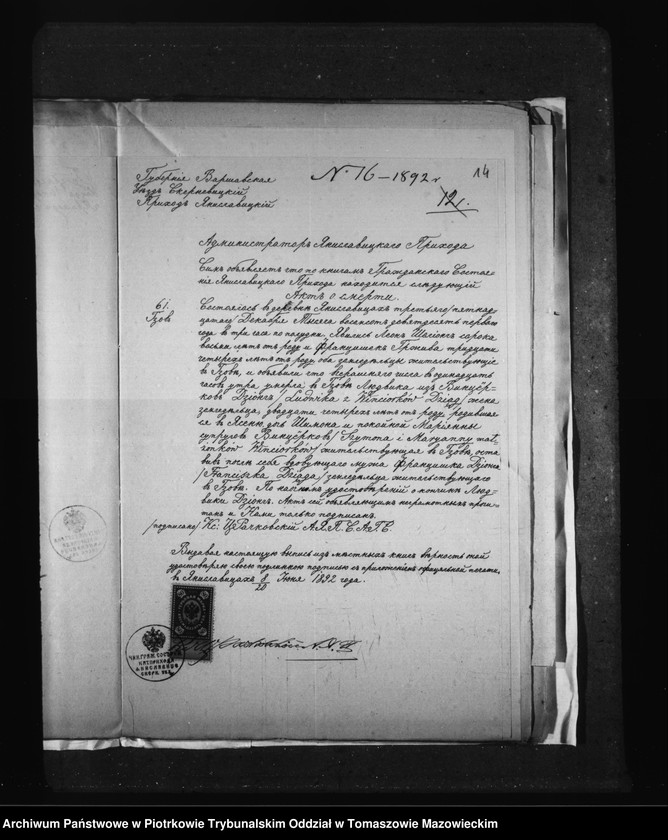 Губернія Варшавская
Уѣздъ Скерневицкій
Приходъ Яниславицкій
№ 16 – 1892 г
14
12.
Администраторъ Яниславицкаго Прихода
Симъ объявляетъ что по книгамъ Гражданскаго Состоя-
нія Яниславицкаго Прихода находится слѣдующій
Актъ о смерти.
61.
Состоялось въ деревнѣ Яниславицахъ третьяго/пятнад-
цатаго/Декабря Мѣсяца восемьсотъ девяностъ перваго
года въ три часа по полудни. Явились Леонъ сорока
восьми лѣтъ отъ роду и Францишекъ тридцати
четырехъ лѣтъ отъ роду оба земледѣльцы жительствующіе
въ и объявили что вчерашняго числа въ одинадцать
часовъ утра умерла въ Людвика изъ Винцёр-
ковъ Дзіонгъ/Ludwika z Winciorków Dziąg/жена
земледѣльца, двадцати четырехъ лѣтъ отъ роду, родившая-
ся въ дочь Шимона и покойной Маріанны
супруговъ Винцёрковъ/Szymona i Maryanny mał-
żonków Winciorków/жительствующая въ оста-
вивъ послѣ себя вдовующаго мужа Францишка Дзіонга
/Franciszka Dziąga/земледѣльца жительствующаго
въ По удостовѣреніи о кончинѣ Люд-
вики Дзіонгъ. Актъ сей объявляющимъ неграмотнымъ прочи-
танъ и Нами только подписанъ.
/подписано/Кс: Ц. Рачковскій А.Я.П.С.А.Г.С.
Выдавая настоящую выпись изъ мѣстныхъ книгъ вѣрность той
удостовѣряю своею подлинною подписью съ приложеніемъ офиціальной печати,
въ Яниславицахъ 8/20 Іюня 1892 года.
Archiwum Państwowe w Piotrkowie Trybunalskim Oddział w Tomaszowie Mazowieckim